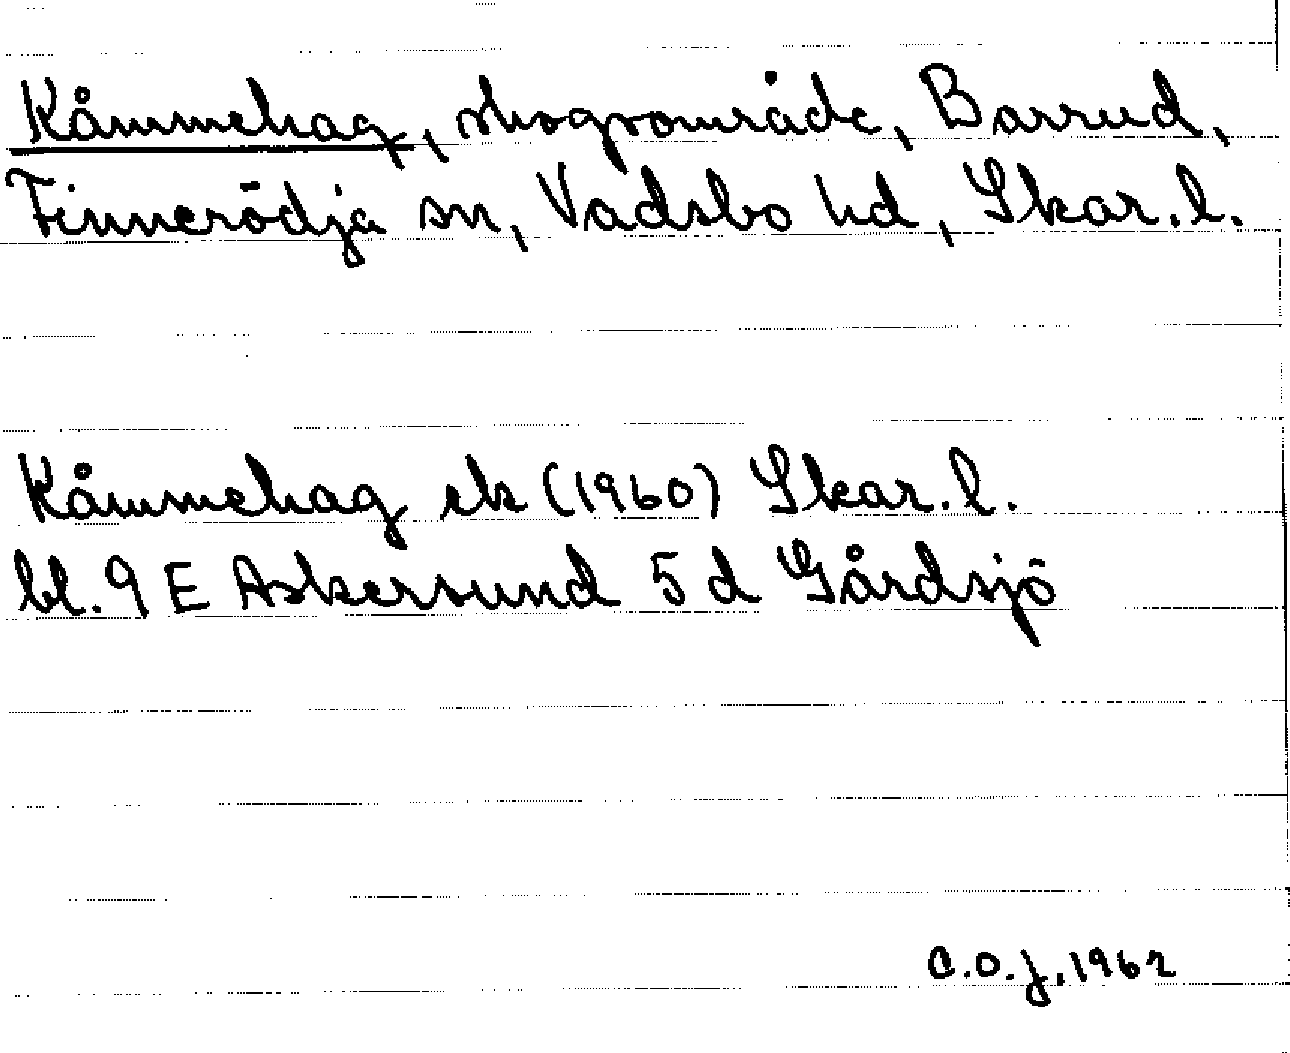 Kåmmehag, skogsområde, Barrud,
Finnerödja sn, Vadsbo hd, Skar. l.
Kåmmehag ek (1960) Skar. l.
bl. 9 E Askersund 5 d Gårdsjö
C.O.J. 1962